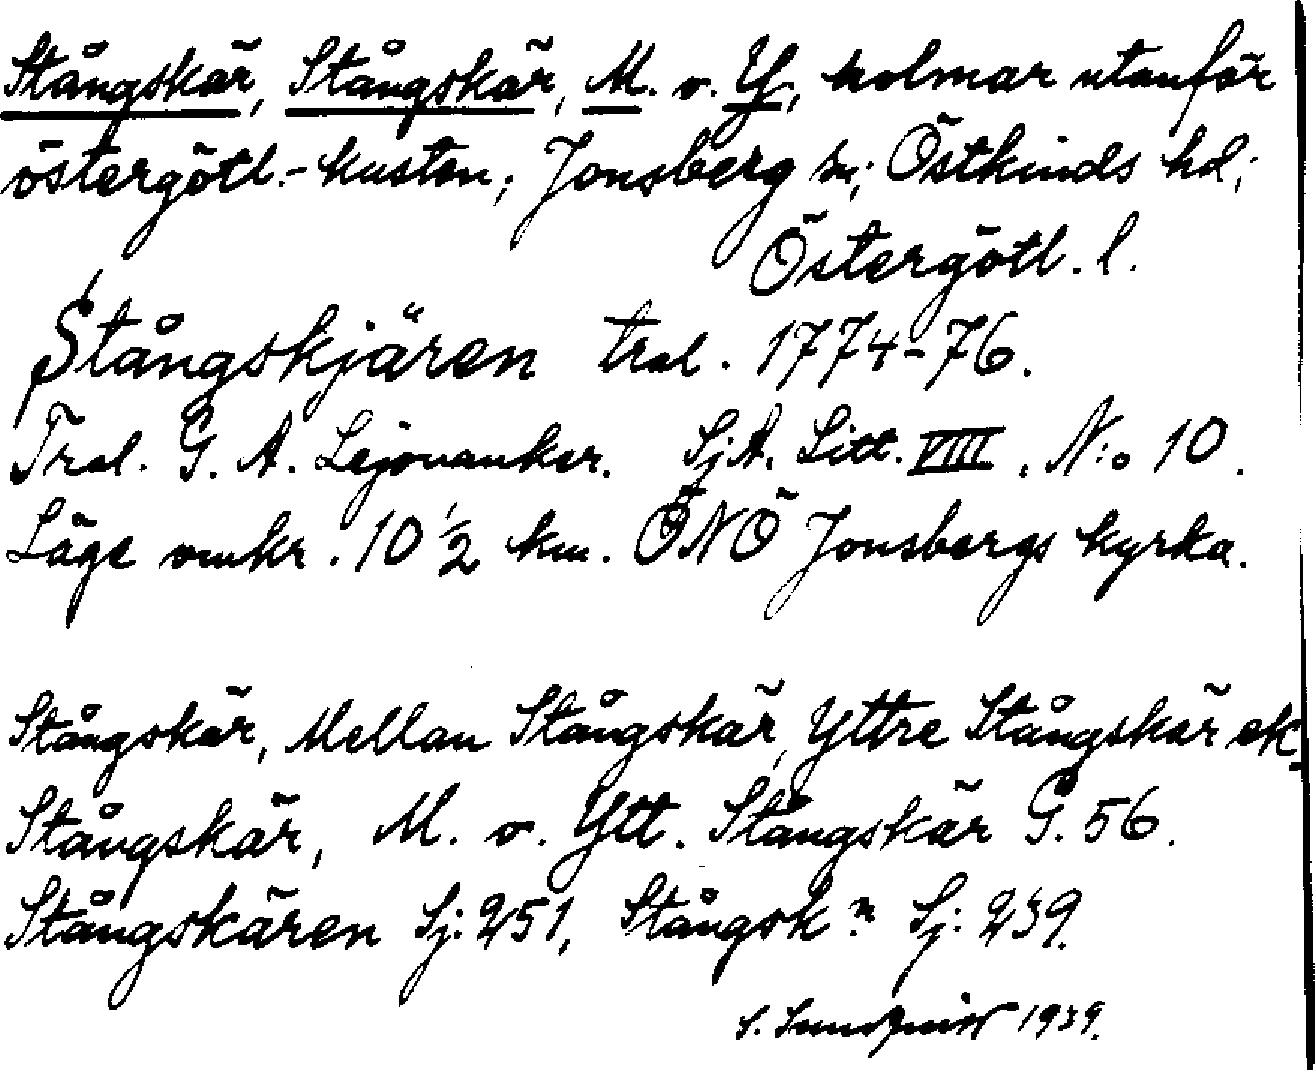 Stångskär, Stångskär, M. o. Y., holmar utanför
östergötl.-kusten; Jonsberg sn; Östkinds hd;
Östergötl. l.
Stångskjären tral. 1774-76.
Tral. G. A. Lejonanker. Sj.A. Litt. VIII. N:o 10.
Läge omkr. 10 1/2 km. ÖNÖ Jonsbergs kyrka.
Stångskär, Mellan Stångskär, Yttre Stångskär ek.
Stångskär, M. o. Ytt. Stångskär G. 56.
Stångskären Sj: 251, Stångsk n Sj: 239.
S. Sundquist 1939.